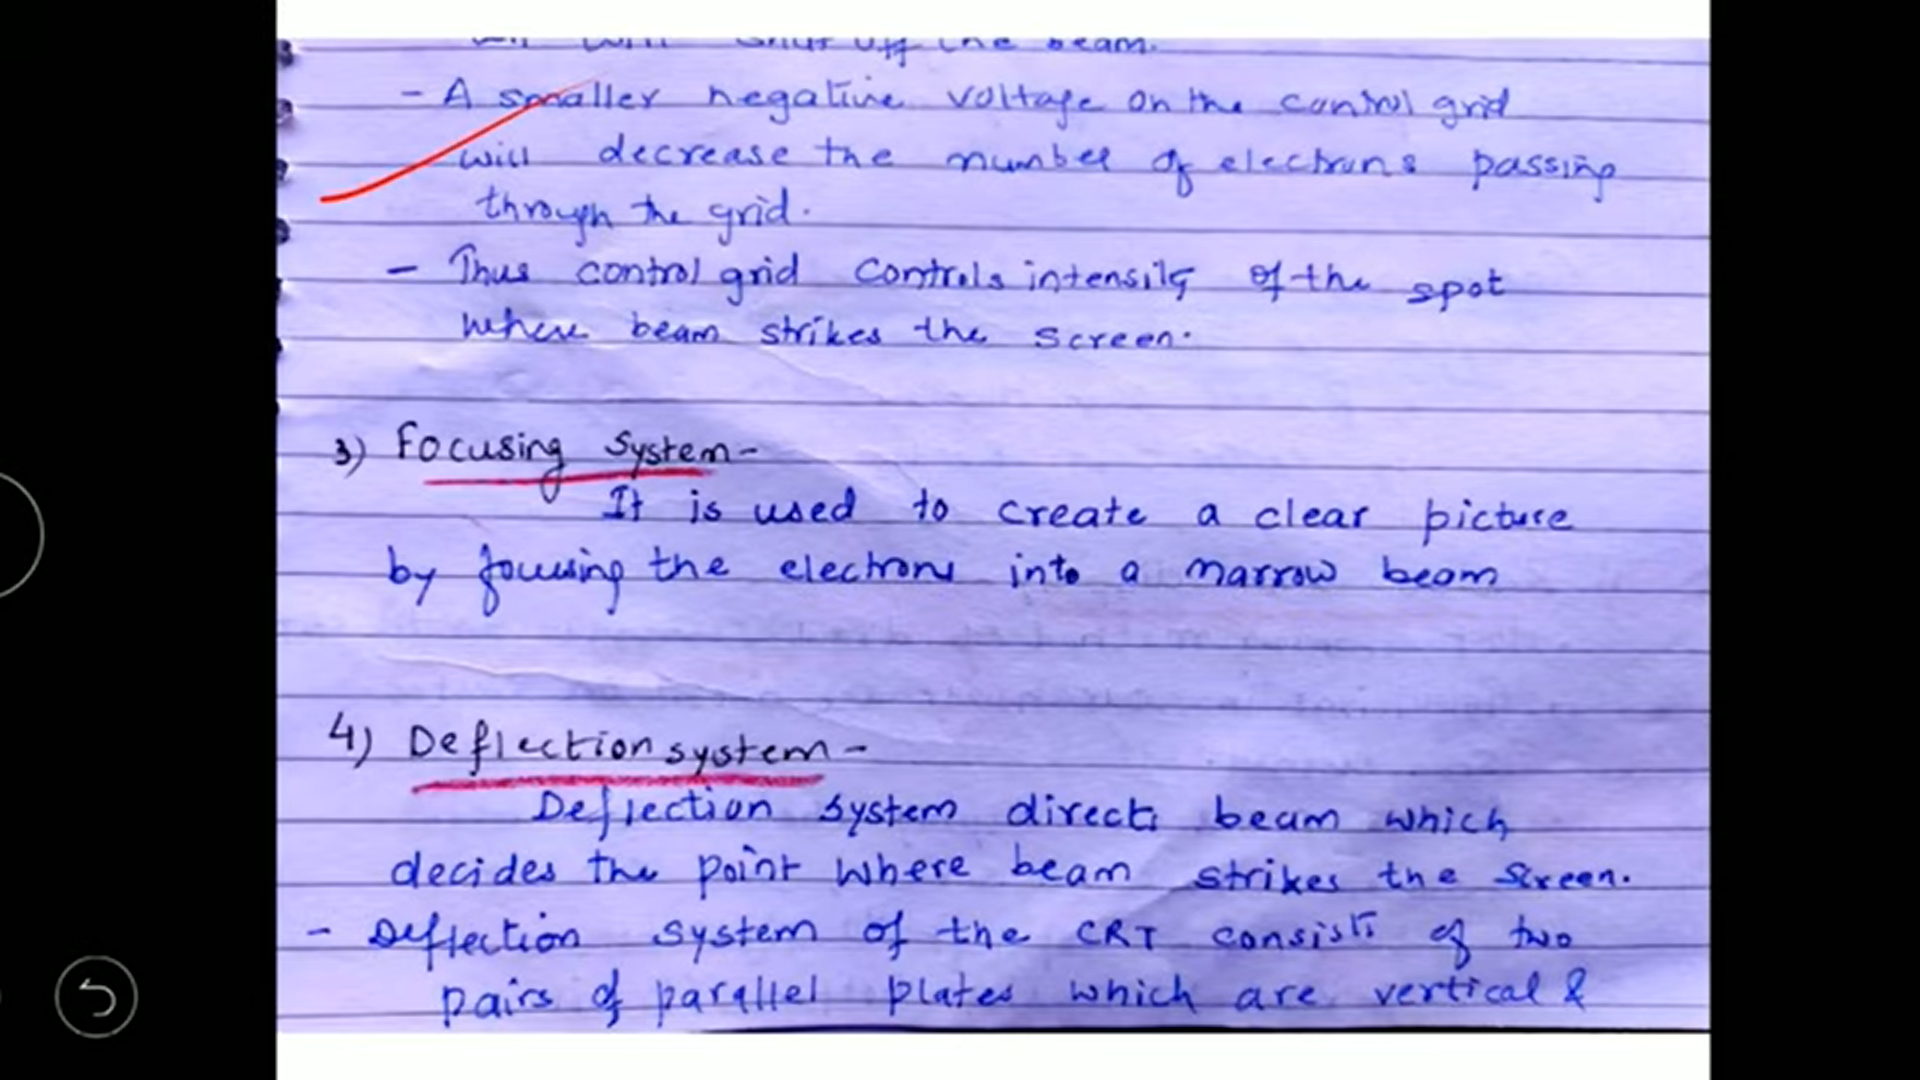 will shut off the beam.
- A smaller negative voltage on the control grid
will decrease the number of electrons passing
through the grid.
- Thus control grid controls intensity of the spot
where beam strikes the screen.
3) Focusing System -
It is used to create a clear picture
by focusing the electrons into a narrow beam
4) Deflection system -
Deflection system directs beam which
decides the point where beam strikes the screen.
- Deflection system of the CRT consists of two
pairs of parallel plates which are vertical &